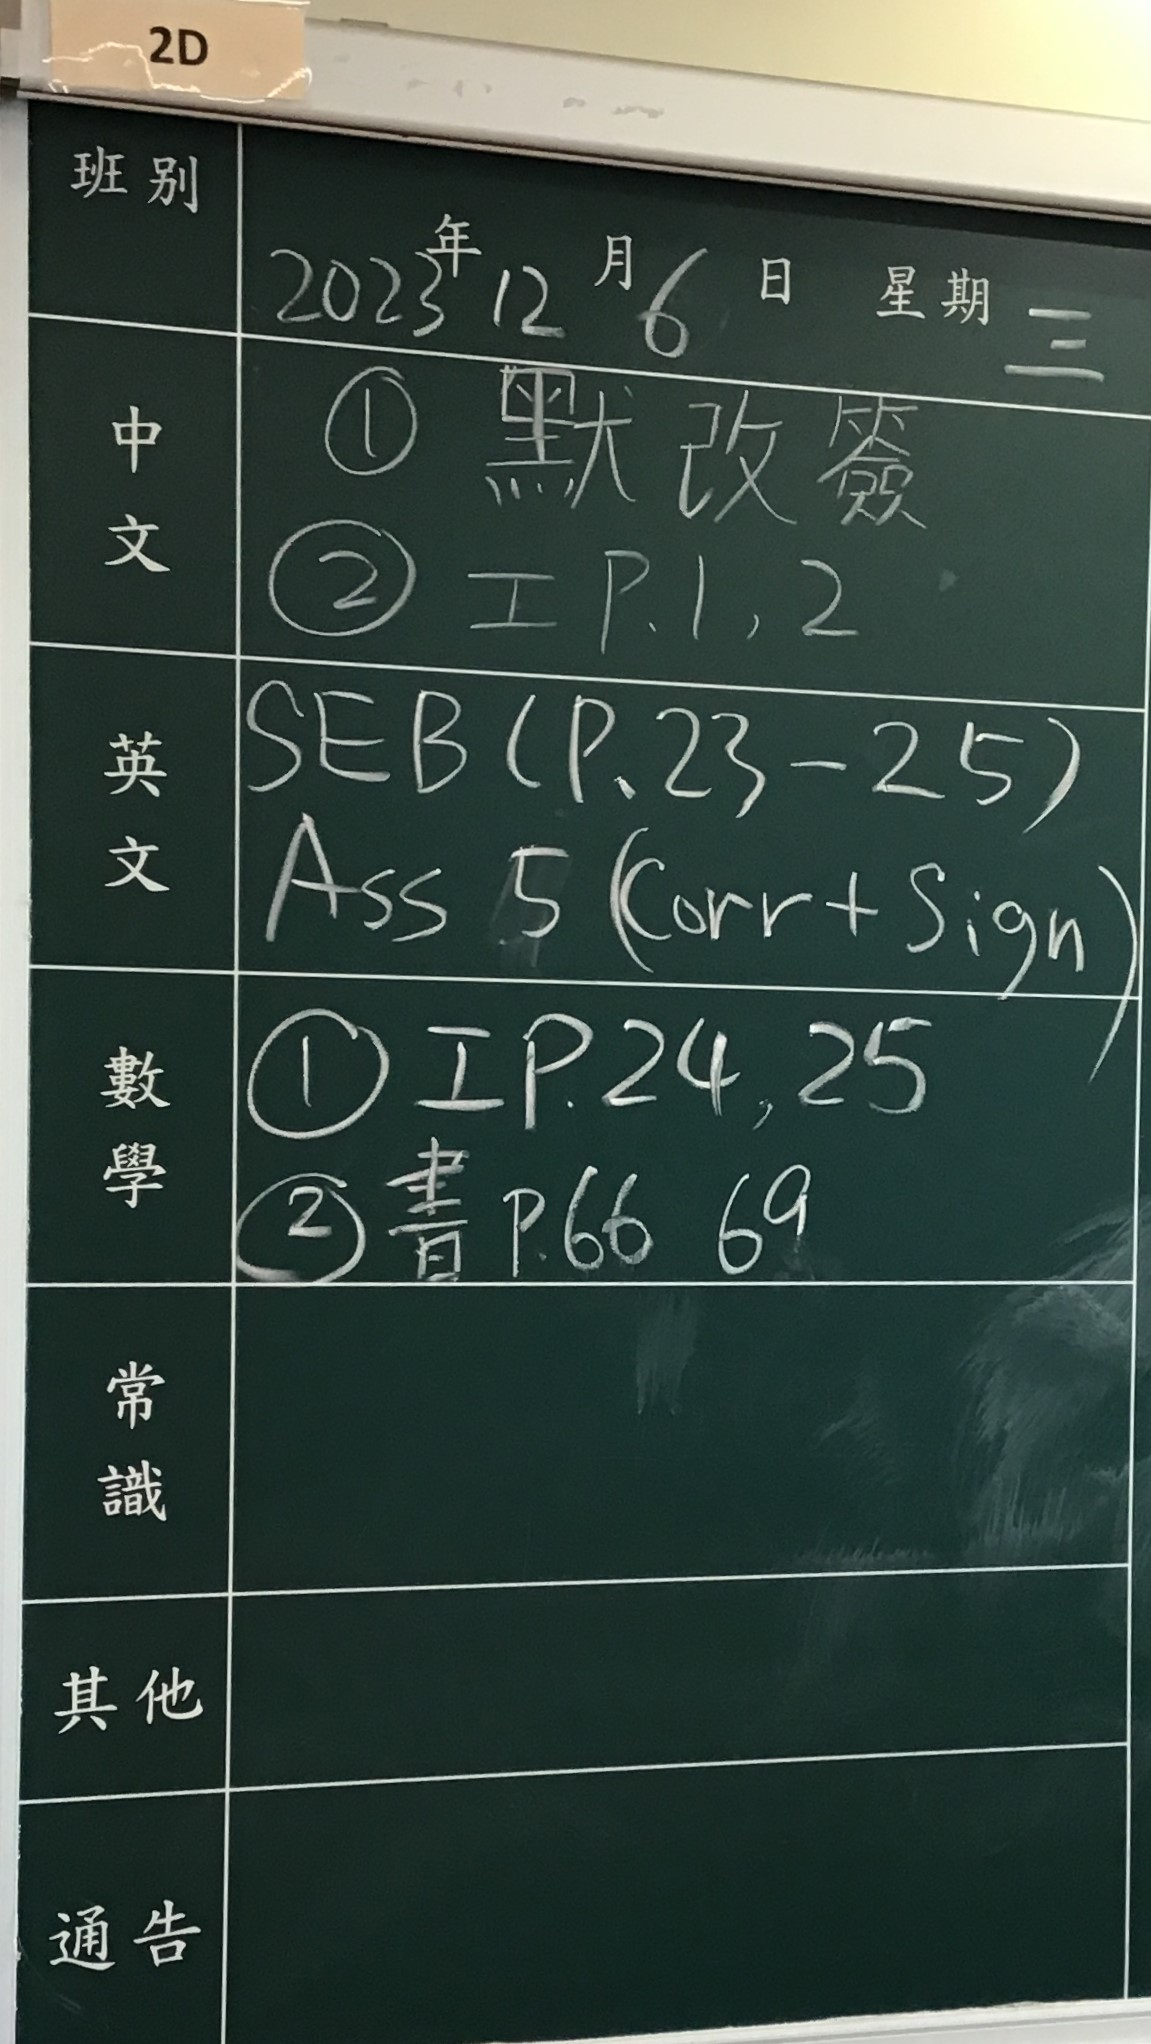 2D
班別
年 月 日 星期
2023 12 6 三
中文
① 默改簽
② 工 P.1, 2
英文
SEB (P.23-25)
Ass 5 (Corr + Sign)
數學
① 工 P.24, 25
② 書 P.66 69
常識
其他
通告